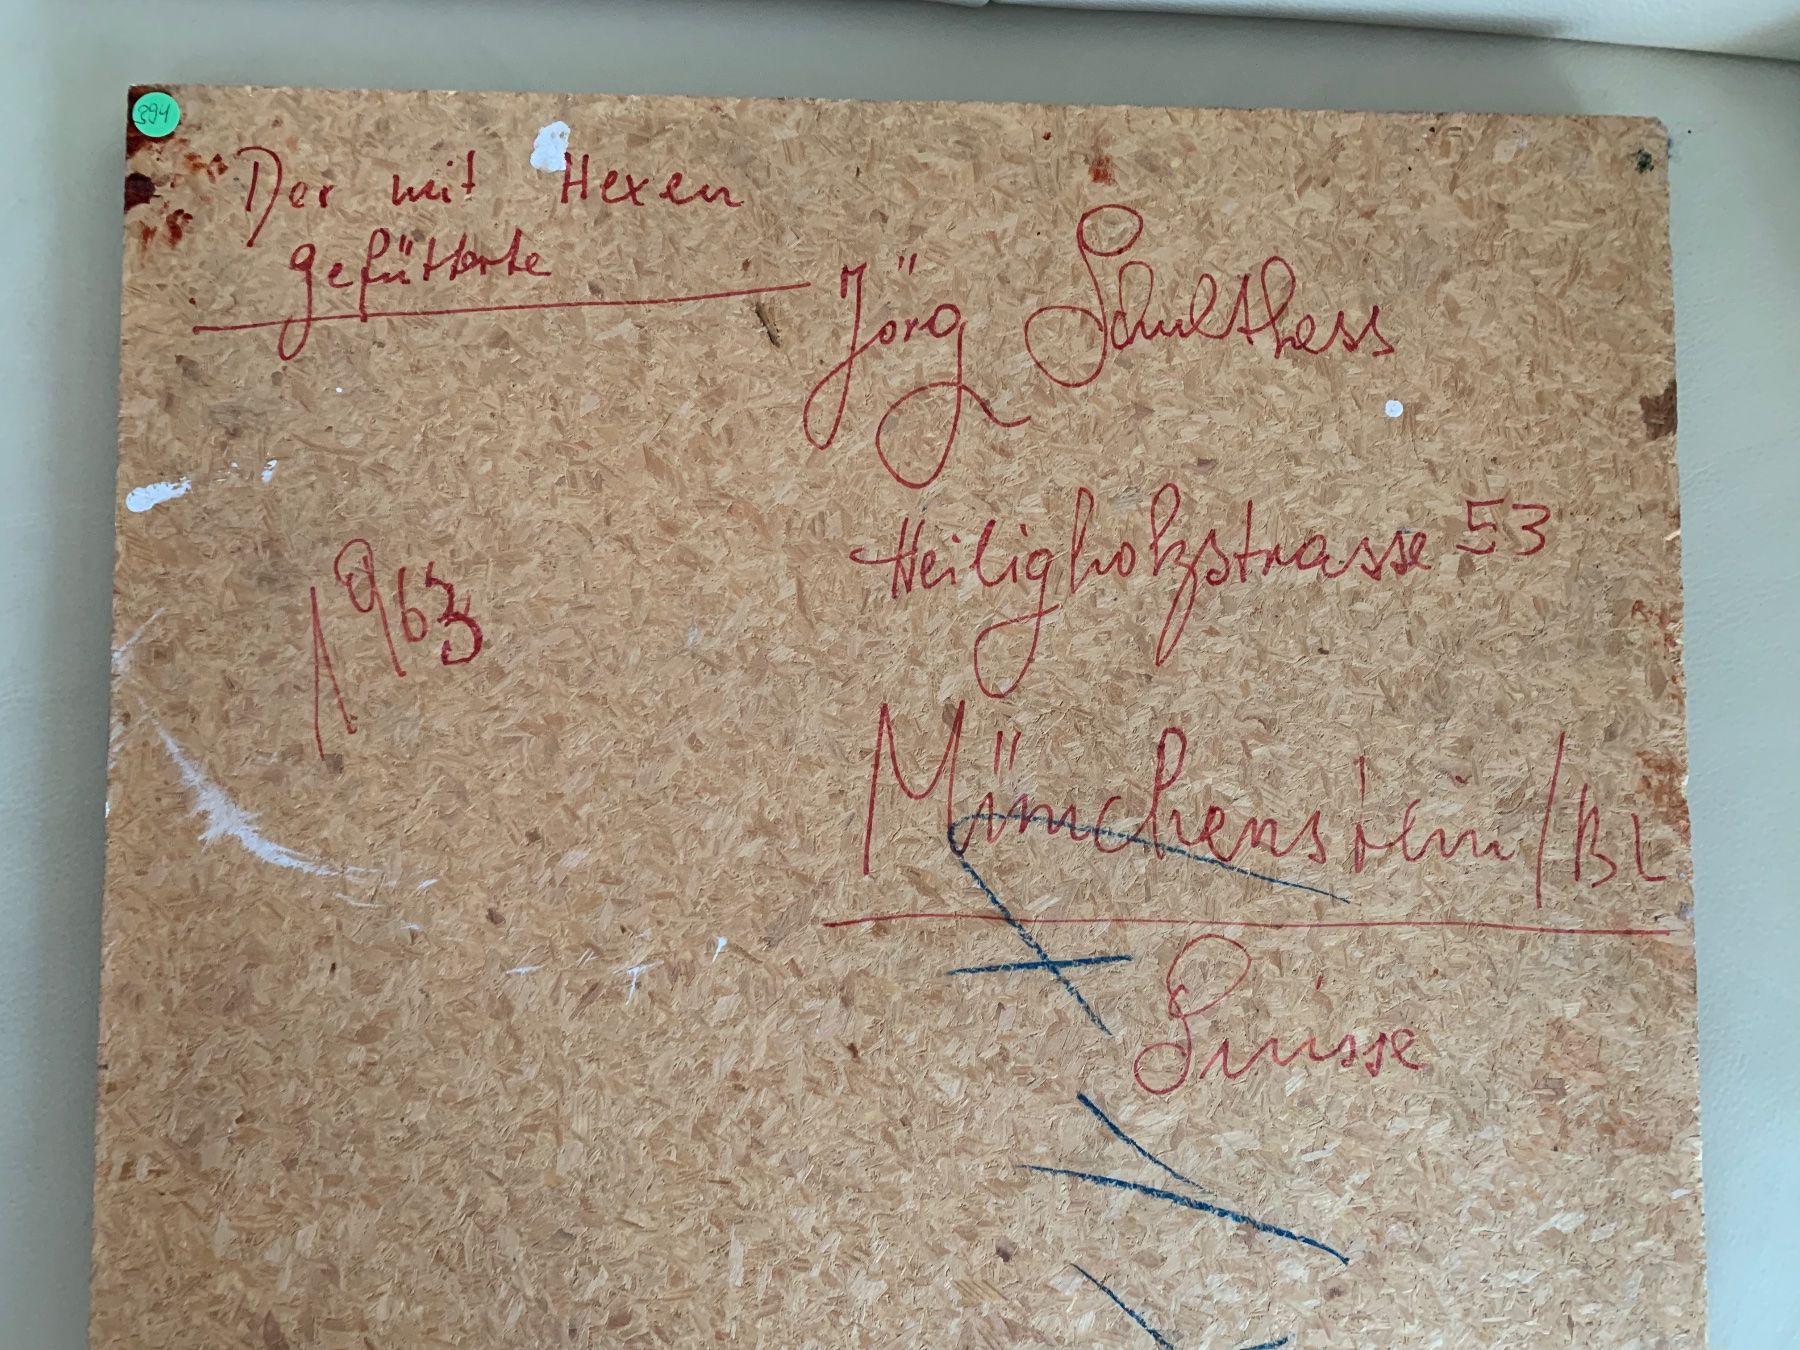 394
Der mit Hexen
gefütterte
Jörg Schulthess
Heiligholzstrasse 53
1963
Münchenstein/BL
Suisse